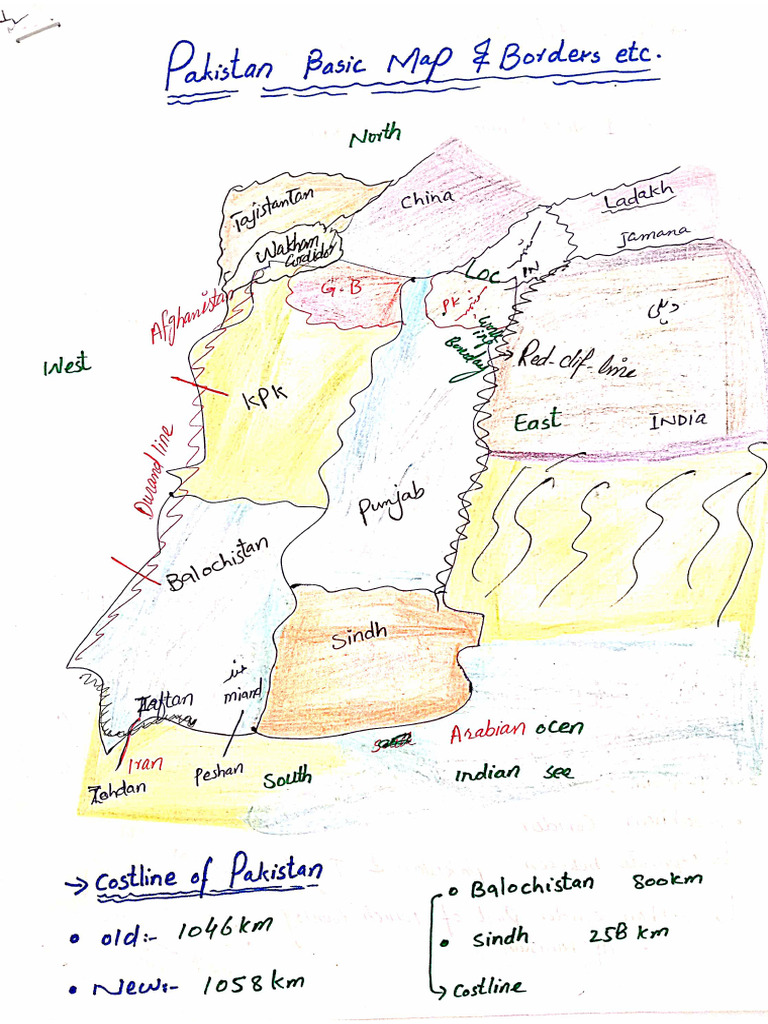 Pakistan Basic Map & Borders etc.
North
Tajistantan
China
Ladakh
Wakham
Cordidor
Jamana
LOC
IN
G.B
PK
Afghanistan
Work
ing
Bonday
Red-clif-line
West
KPK
East
INDIA
Durand line
Punjab
Balochistan
Sindh
Taftan
miand
Arabian ocen
Iran
Zehdan
Peshan
South
Indian see
→ Costline of Pakistan
• old:- 1046 km
• New:- 1058 km
• Balochistan 800km
• Sindh 258 km
→ Costline